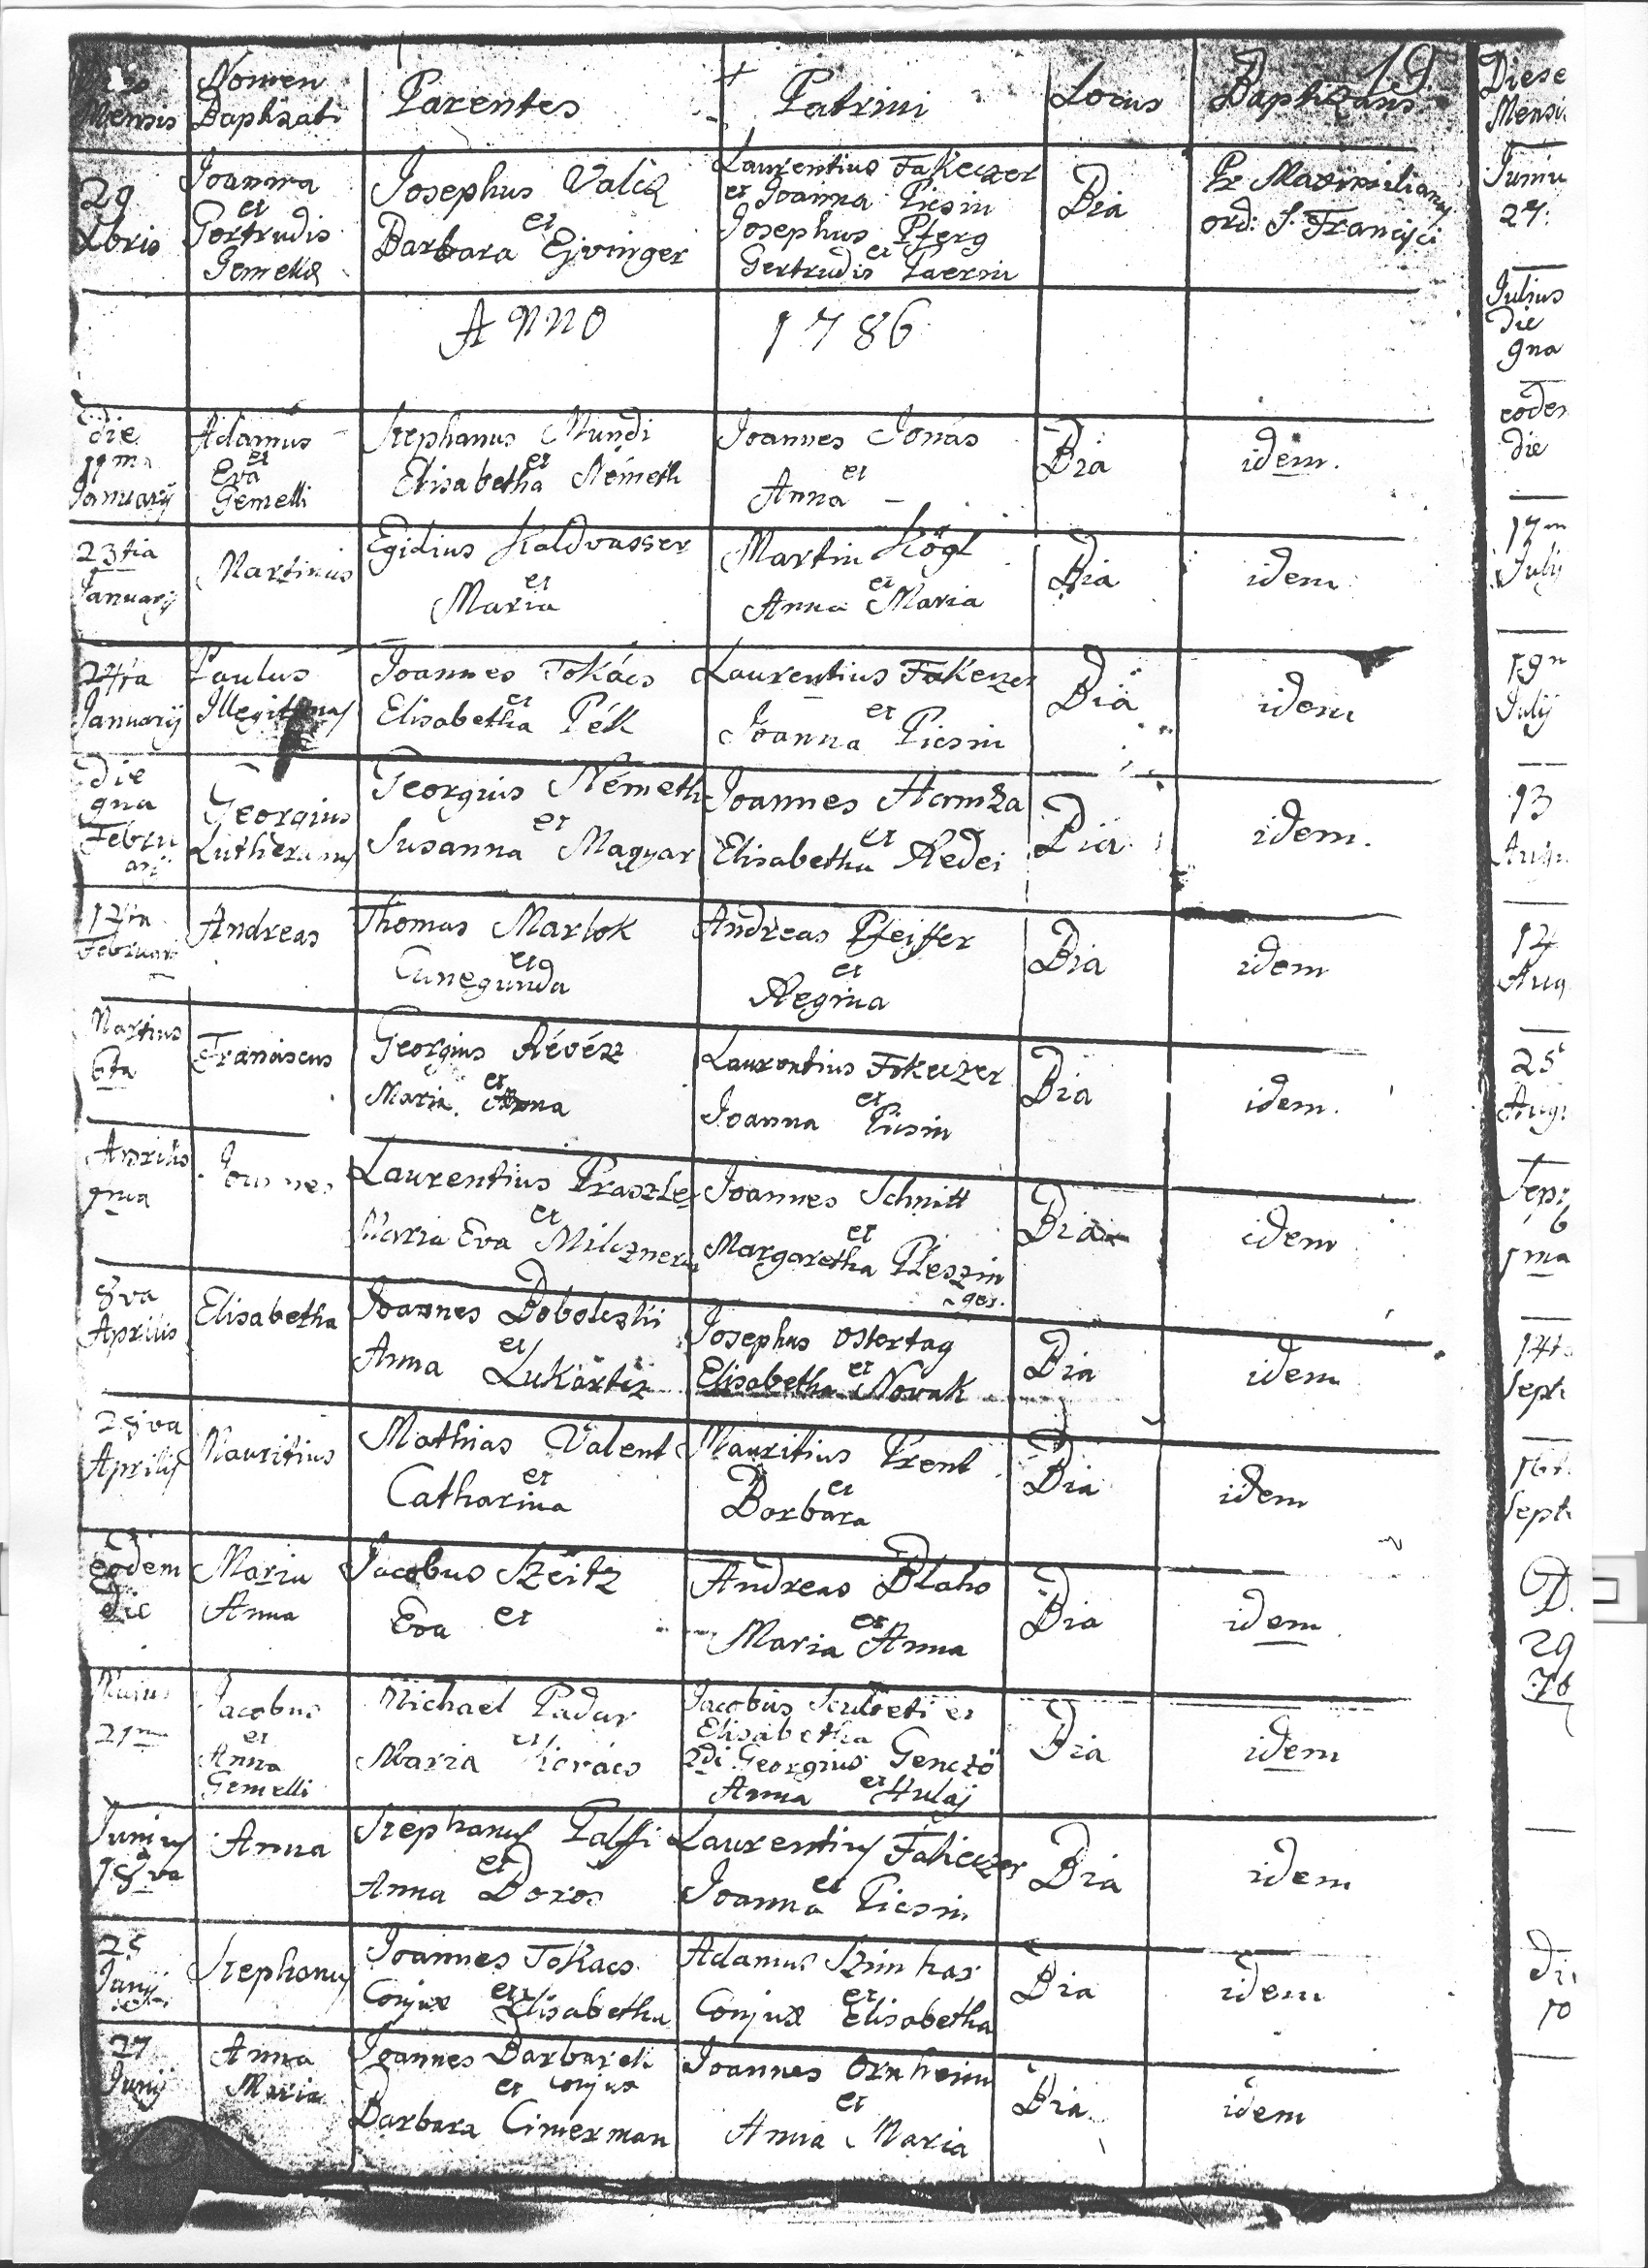 19.
Mensis
Nomen
Baptizati
Parentes
Patrini
Locus
Baptizans
29
Xbris
Joanna
et
Gertrudis
Gemellae
Josephus Valis
et
Barbara Ejvinger
Laurentius Fakeczer
et Joanna Picsin
Josephus Pferg
et
Gertrudis Paerin
Bia
Pr Maximilianus
ord: S. Francisci
Anno 1786
die
19ma
Januarij
Adamus
et
Eva
Gemelli
Stephanus Mundi
et
Elisabetha Németh
Joannes Jonás
et
Anna –
Bia
idem.
23tia
Januarij
Martinus
Egidius Kaldvasser
et
Maria
Martin Kögl
et
Anna Maria
Bia
idem
24ta
Januarij
Paulus
Illegitimus
Joannes Tokács
et
Elisabetha Pék
Laurentius Fakeczer
et
Joanna Picsin
Bia
idem
die
9na
Febru
arij
Georgius
Lutheranus
Georgius Németh
et
Susanna Magyar
Joannes Hamza
et
Elisabetha Redei
Bia
idem.
Februar
Andreas
Thomas Marlok
et
Cunegunda
Andreas Pfeiffer
et
Regina
Bia
idem
Martius
6ta
Franciscus
Georgius Révész
et
Maria Anna
Laurentius Fakeczer
et
Joanna Picsin
Bia
idem.
Aprilis
Joannes
Laurentius Praszle
et
Maria Eva Milczner
Joannes Schnitt
et
Margaretha Pleszin
Bia
idem
8va
Aprilis
Elisabetha
Joannes Doboleszki
et
Anna Lukártis
Josephus Ostertag
et
Elisabetha Novak
Bia
idem
28va
Aprilis
Mauritius
Mathias Valent
et
Catharina
Mauritius Prent
et
Barbara
Bia
idem
eodem
die
Maria
Anna
Jacobus Szeitz
Eva et
Andreas Blaho
et
Maria Anna
Bia
idem
Maius
21ma
Jacobus
et
Anna
Gemelli
Michael Padar
et
Maria Kovács
Jacobus Szulveti et
Elisabetha
2di Georgius Genczö
et
Anna Hulaj
Bia
idem
Junius
18va
Anna
Stephanus Palffi
et
Anna Boros
Laurentius Fakeczer
et
Joanna Picsin
Bia
idem
25
Junij
Stephanus
Joannes Tokacs
et
Conjux Elisabetha
Adamus Szinhas
et
Conjux Elisabetha
Bia
idem
27
Junij
Anna
Maria
Joannes Barbarek
et Conjux
Barbara Cimerman
Joannes Ornheim
et
Anna Maria
Bia
idem
Diese
Mensi
Juniu
27.
Julius
die
9na
eodem
die
17m
July
19n
July
13
Augu
12
Aug
25
Augu
Sept
14t
Sept
16t
Sept
29
10